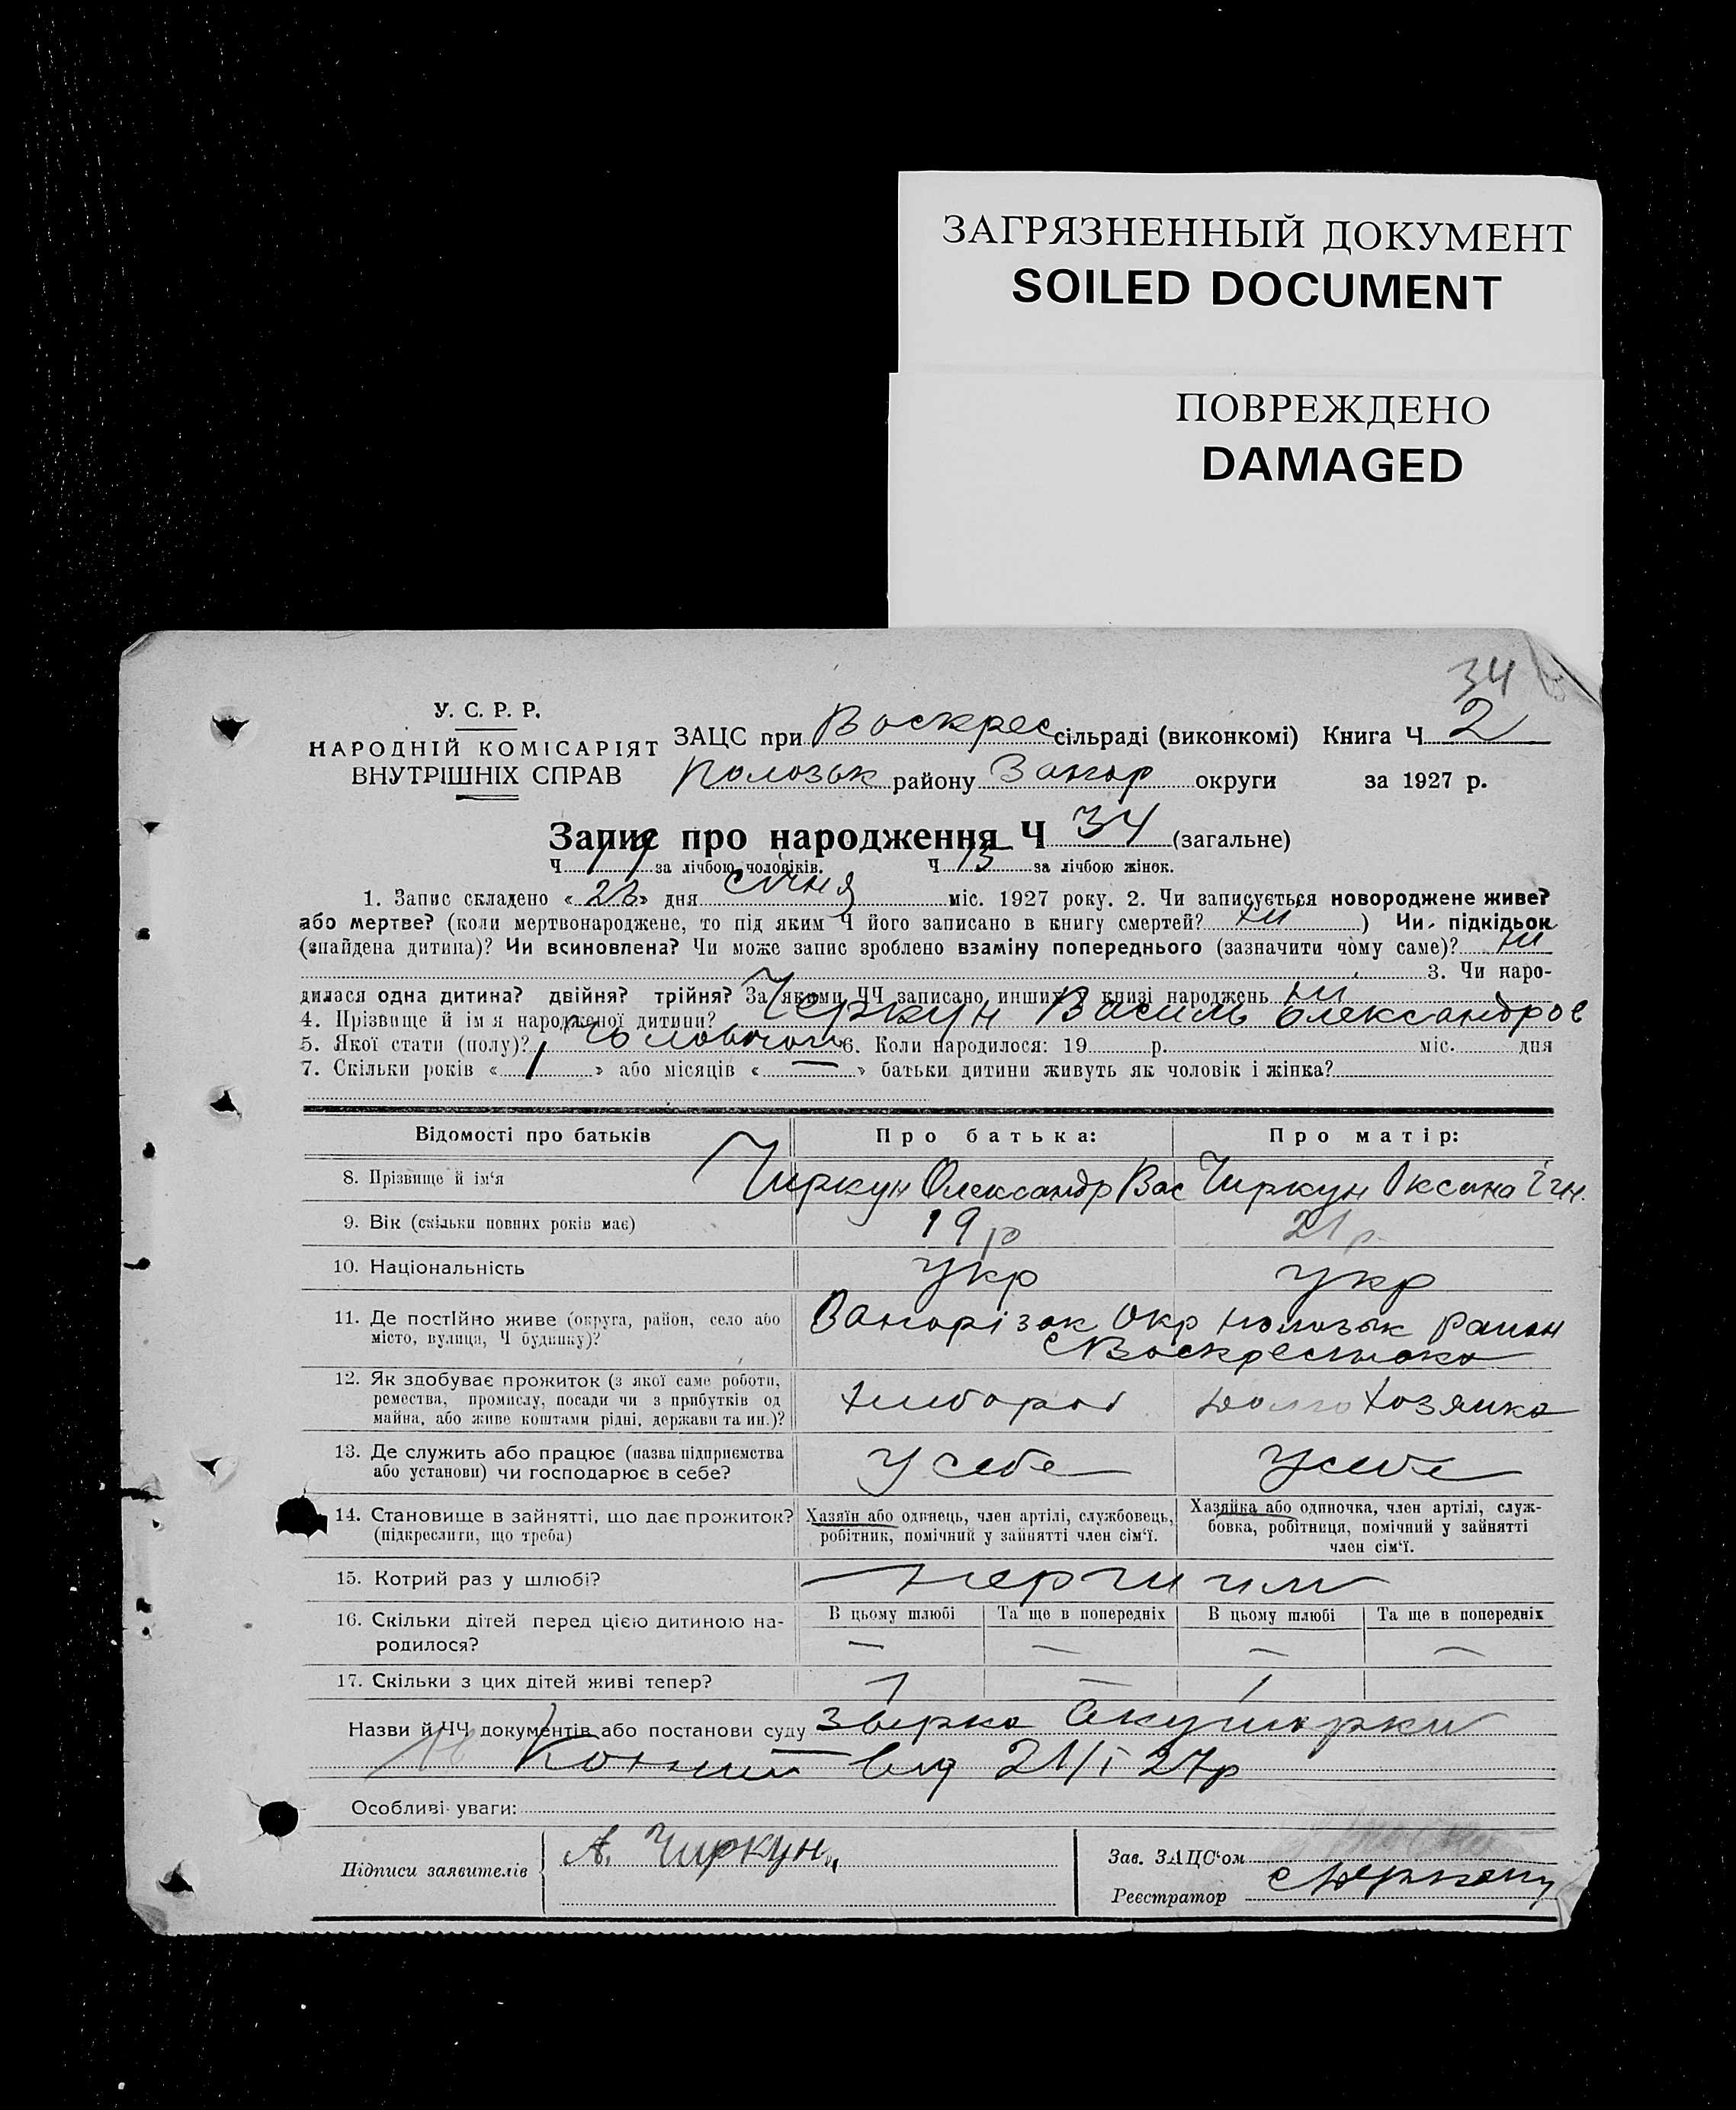 ЗАГРЯЗНЕННЫЙ ДОКУМЕНТ
SOILED DOCUMENT
ПОВРЕЖДЕНО
DAMAGED
34
У. С. Р. Р.
НАРОДНІЙ КОМІСАРІЯТ
ВНУТРІШНІХ СПРАВ
ЗАЦС при Воскрес сільраді (виконкомі) Книга Ч 2
Полозьк району Запор округи за 1927 р.
Запис про народження Ч 34 (загальне)
Ч за лічбою чоловіків. Ч 15 за лічбою жінок.
1. Запис складено « » дня січня міс. 1927 року. 2. Чи записується новороджене живе?
або мертве? (коли мертвонароджене, то під яким Ч його записано в книгу смертей? ні ) Чи підкідьок
(знайдена дитина)? Чи всиновлена? Чи може запис зроблено взаміну попереднього (зазначити чому саме)? ні
3. Чи наро-
дилася одна дитина? двійня? трійня? За якими ЧЧ записано инших у книзі народжень ні
4. Прізвище й ім я народженої дитини? Черкун Василь Олександров
5. Якої стати (полу)? 6. Коли народилося: 19 р. міс. дня
7. Скільки років « 1 » або місяців « — » батьки дитини живуть як чоловік і жінка?
Відомості про батьків Про батька: Про матір:
8. Прізвище й ім'я Чиркун Олександр Вас Чиркун Оксана
9. Вік (скільки повних років має) 19 р 21 р
10. Національність укр укр
11. Де постійно живе (округа, район, село або
місто, вулиця, Ч будинку)?
Запорізьк Окр Полозьк район
с Воскресенка
12. Як здобуває прожиток (з якої саме роботи,
ремества, промислу, посади чи з прибутків од
майна, або живе коштами рідні, держави та ин.)?
хлібороб хозяйка
13. Де служить або працює (назва підприємства
або установи) чи господарює в себе?
У себе У себе
14. Становище в зайнятті, що дає прожиток?
(підкреслити, що треба)
Хазяїн або одинець, член артілі, службовець,
робітник, помічний у зайнятті член сім'ї.
Хазяйка або одиночка, член артілі, служ-
бовка, робітниця, помічний у зайнятті
член сім'ї.
15. Котрий раз у шлюбі?
16. Скільки дітей перед цією дитиною на-
родилося?
В цьому шлюбі Та ще в попередніх В цьому шлюбі Та ще в попередніх
— — — —
17. Скільки з цих дітей живі тепер? 1 — 1
Назви й ЧЧ документів або постанови суду Акушорки
від 21/I 27р
Особливі уваги:
Підписи заявителів А. Чиркун
Зав. ЗАЦС'ом
Реєстратор